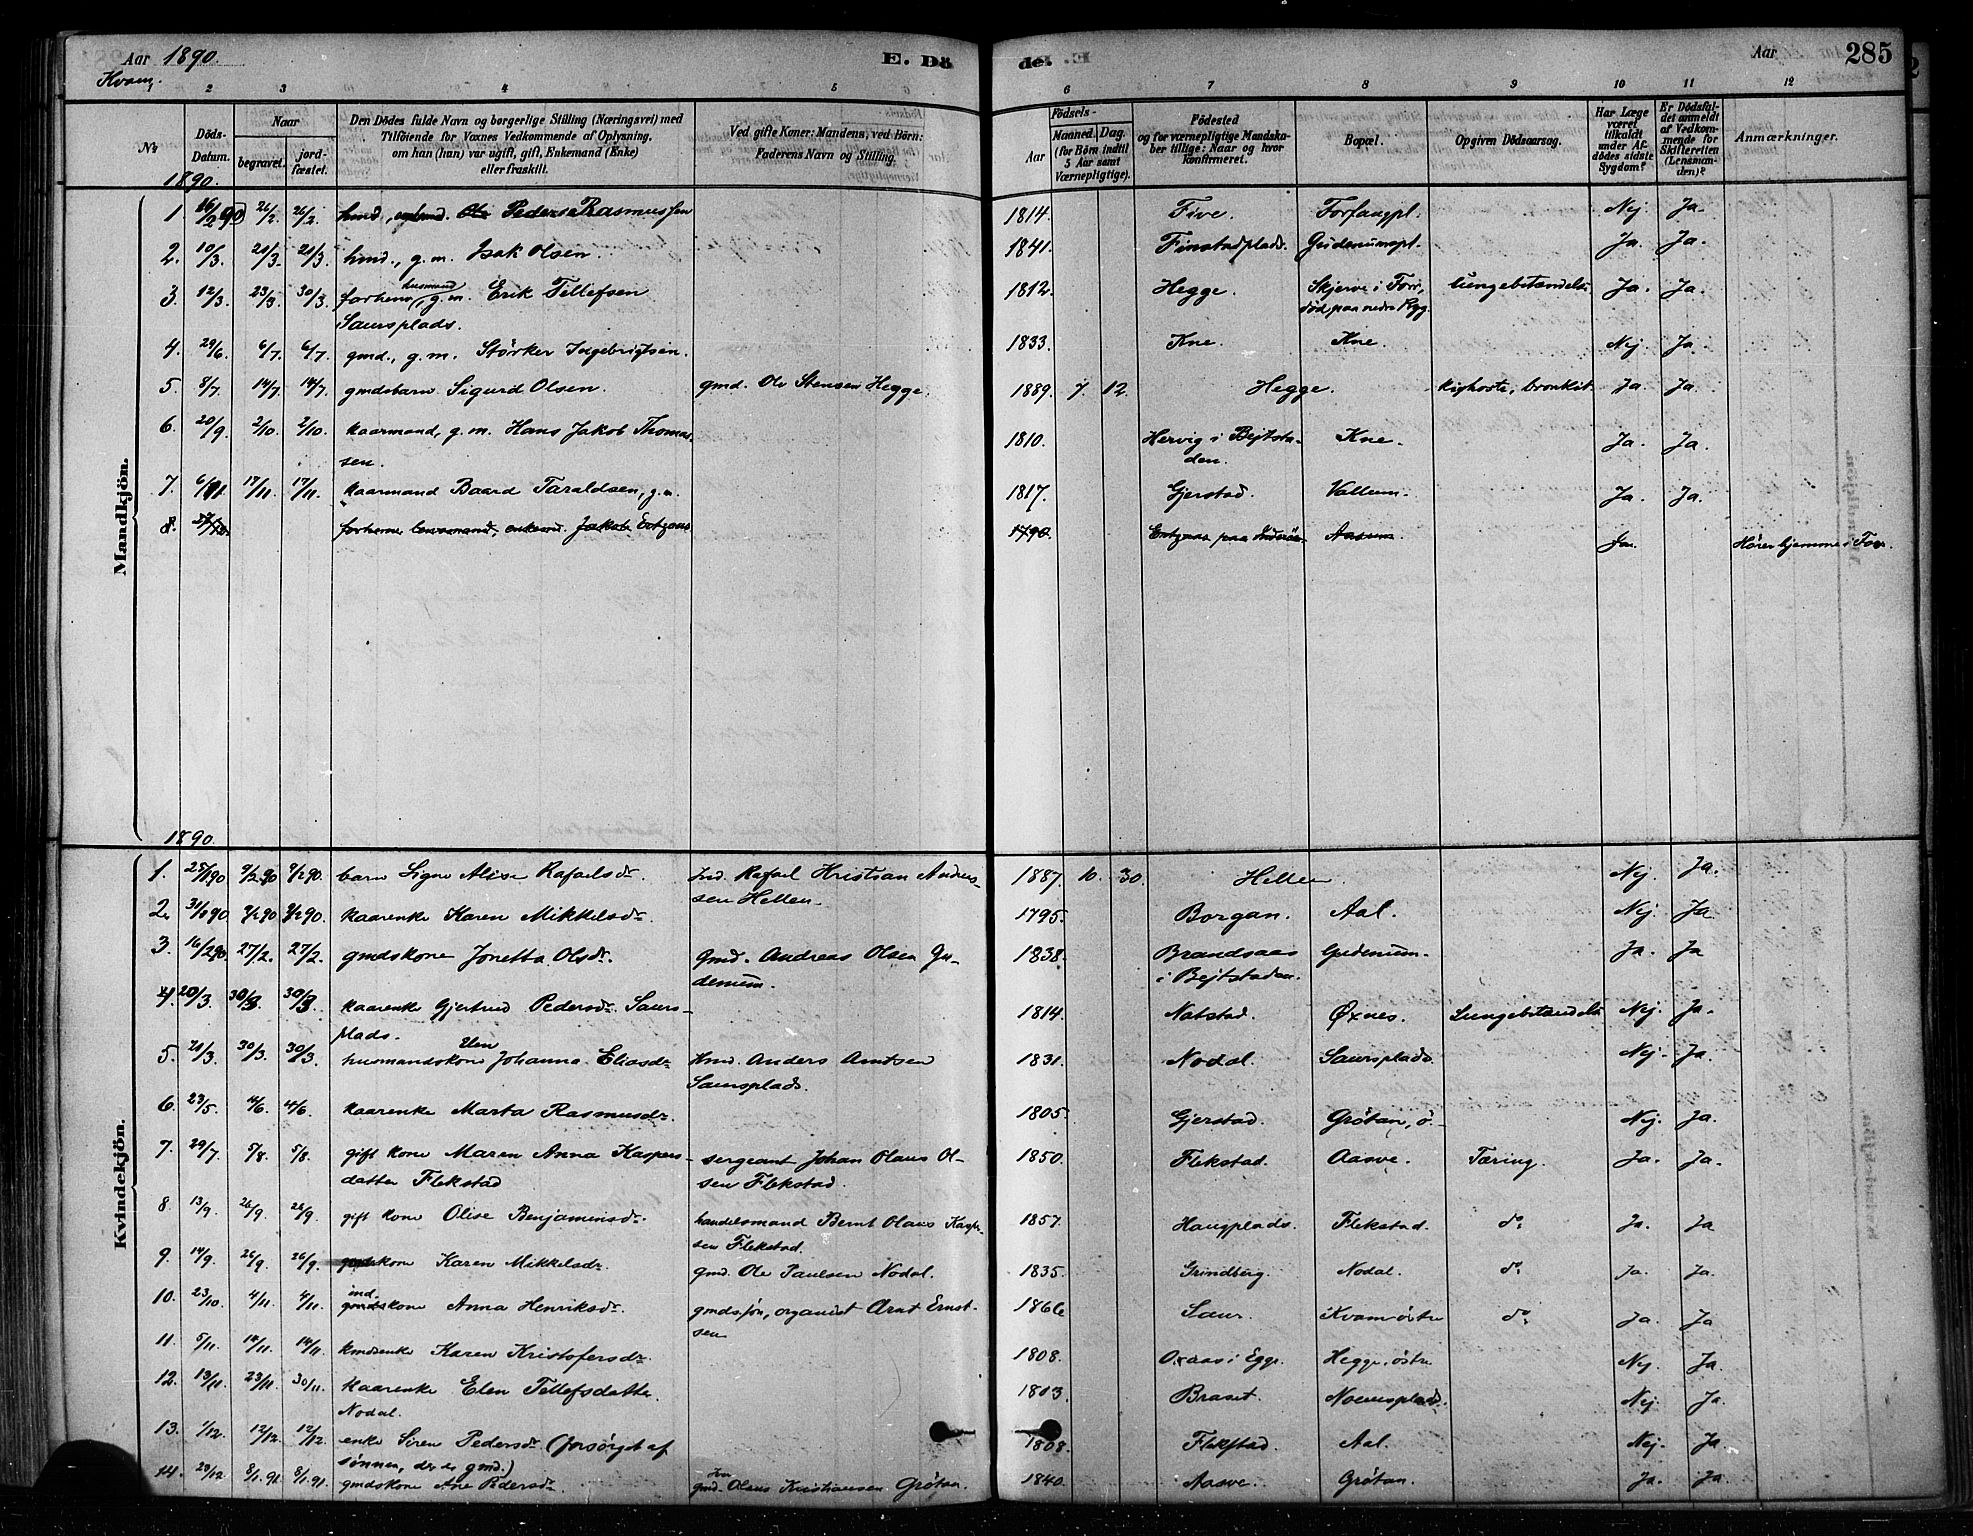 Aar 1890. E. Dö
de. Aar 285
Kvam,
1 2 3 4 5 6 7 8 9 10 11 12
No Döds-Datum. Naar begravet. jord-fæstet. Den Dødes fulde Navn og borgerlige Stilling (Næringsvei) med Tilföiende for Voxnes Vedkommende af Oplysning, om han (hun) var ugift, gift, Enkemand (Enke) eller fraskilt. Ved gifte Koner: Mandens, ved Börn: Faderens Navn og Stilling. Födsels- Aar Maaned. Dag. (for Börn indtil 5 Aar samt Værnepligtige). Födested og for værnepligtige Mandskaber tillige: Naar og hvor konfirmeret. Bopæl. Opgiven Dödsaarsag. Har Læge været tilkaldt under Afdödes sidste Sygdom? Er Dödsfaldet anmeldt af Vedkommende for Skifteretten (Lensmanden)? Anmærkninger.
Mandkjön.
1890.
1. 16/2 90 26/2. 26/2. husmd., Peder Rasmussen 1814. Five. Forfangpl. Nej Ja.
2. 10/3. 21/3. 21/3. husmd., g.m. Isak Olsen. 1841. Finstadplads. Gudenumspl. Ja. Ja.
3. 12/3. 23/3. 30/3. forhens husmand, g.m. Erik Tellefsen 1812. Hegge. Skjerve i Forr, lungebetændelse Ja. Ja.
Saursplads. død paa nedre Ryg.
4. 29/6. 6/7. 6/7. gmd., g.m. Størker Ingebrigtsen. 1833. Kne. Kne. Nej Ja.
5. 8/7. 14/7. 14/7. gmdsbarn Sigurd Olsen. gmd. Ole Stensen Hegge. 1889. 7. 12. Hegge. kighoste, bronkit. Ja. Ja.
6. 20/9. 2/10. 2/10. kaarmand, g.m. Hans Jakob Thomas- 1810. Hervig i Bejtsta- Kne. Ja. Ja.
sen. den.
7. 6/11 17/11. 17/11. kaarmand Baard Taraldsen, g.m. 1817. Gjerstad. Vallum. Ja. Ja.
8. forhenv. lensmand, enkemd. Jakob 1790. paa Inderøen Aasum. Ja. Hører hjemme i For.
Kvindekjön.
1890.
1. 25/1 90 9/2 90 9/2 90. barn Signe Alise Rafaelsdr. Ind. Rafael Kristian Andreas- 1887. 10. 30. Hellem. Nej. Ja.
sen Hellem.
2. 31/1 90 9/2 90 9/2 90. kaarenke Karen Mikkelsdr. 1795. Borgan. Aal. Nej. Ja
3. 16/2 90. 27/2. 27/2. gmdskone Jonetta Olsdr. Gmd. Andreas Olsen Gu- 1838. Brandsaas Gudenum. Ja. Ja
denum. i Bejtstaden.
4. 20/3. 30/3. 30/3. kaarenke Gjertrud Pedersdr. Saurs- 1814. Natstad. Øxnes. Lungebetændelse Nej. Ja.
plads.
5. 21/3. 30/3. 30/3. husmandskone Elen Johanna Eliasdr. Hmd. Anders Arntsen 1831. Nodal. Saursplads. Nej. Ja.
Saursplads.
6. 23/5. 4/6. 4/6. kaarenke Marta Rasmusdr. 1805. Gjerstad. Grötan, ö. Nej. Ja.
7. 29/7. 5/8. 5/8. gift kone Maren Anna Kaspers- sergeant Johan Olaus Ol- 1850. Flekstad. Aasve. Tæring. Ja. Ja.
datter Flekstad sen Flekstad.
8. 13/9. 26/9. 26/9. gift kone Olise Benjaminsdr. handelsmand Bernt Olaus Kasper- 1857. Haugplads. Flekstad. do. Ja. Ja
sen Flekstad.
9. 14/9. 26/9. 26/9. gmdskone Karen Mikkelsdr. gmd. Ole Paulsen Nodal. 1835. Grindberg. Nodal. do. Ja. Ja.
10. 23/10. 4/11. 4/11. ind. gmdskone Anna Henriksdr. gmdssøn, organist Arnt Ernst- 1866 Saur. Kvam östre do. Ja. Ja
sen
11. 5/11. 14/11. 14/11. kmdsenke Karen Kristofersdr. 1808. Oxaas i Egge. Hegge, östre Nej. Ja
12. 13/11. 23/11. 30/11. kaarenke Elen Tellefsdatter 1813. Braset. Noemsplads. Nej. Ja.
Nodal.
13. 1/12. 12/12. 12/12. enke Siren Pedersdr. (forsørget af 1808. Flekstad. Aal. Nej. Ja
sønnen, der er gmd.)
14. 23/12. 8/1. 91. 8/1. 91. gmdskone Ane Pedersdr. gmd. Olaus Kristiansen Grötan. 1840. Aasve. Grötan. Ja. Ja.